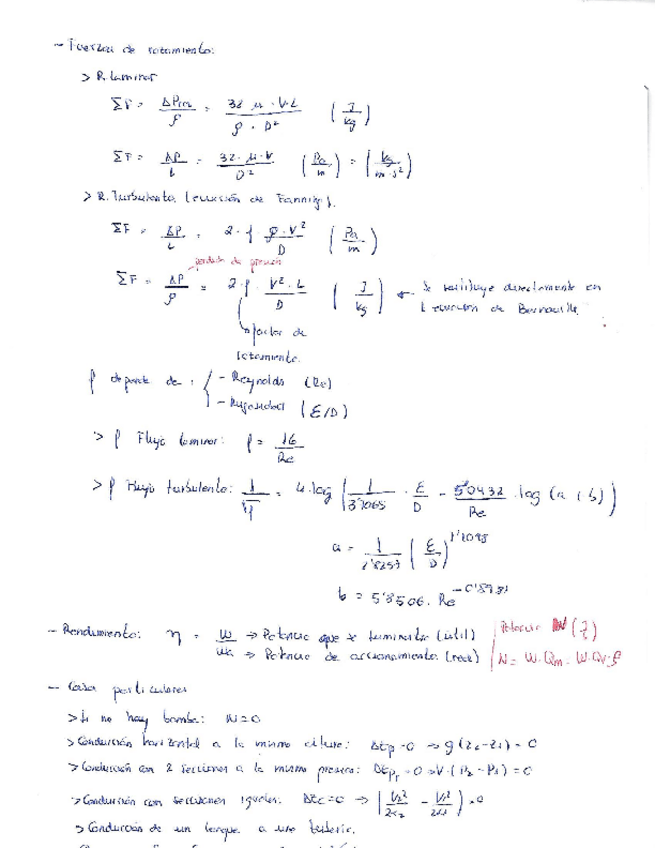 - Fuerzas de rozamiento:
> R. laminar
ΣF = ΔPm / ρ = 32 · μ · V · L / ρ · D² (J/kg)
ΣF = ΔP / L = 32 · μ · V / D² (Pa/m) = (kg / m² · s²)
> R. Turbulento (ecuación de Fanning).
ΣF = ΔP / L = 2 · f · ρ · V² / D (Pa/m)
perdida de presión
ΣF = ΔP / ρ = 2 · f · V² · L / D (J/kg) ← Se sustituye directamente en
Ecuación de Bernouille.
factor de
rozamiento.
f depende de: - Reynolds (Re)
- Rugosidad (ε/D)
> f Flujo laminar: f = 16 / Re
> f Flujo turbulento: 1 / √f = 4 · log (1 / 3'7065 · ε / D - 5'0432 / Re · log (a + b))
a = 1 / 2'8257 (ε / D)^1'1098
b = 5'8506 · Re^-0'8981
- Rendimiento: η = W → Potencia que se suministra (útil) Potencia
→ Potencia de accionamiento (real) N = W · Qm = W · Qv · ρ
- Casos particulares
> Si no hay bomba: W = 0
> Conducción horizontal a la misma altura: ΔEp = 0 → g (z₂ - z₁) = 0
> Conducción con 2 secciones a la misma presión: ΔEpr = 0 → V · (P₂ - P₁) = 0
> Conducción con secciones iguales: ΔEc = 0 → (V₂² / 2α₂ - V₁² / 2α₁) = 0
> Conducción de un tanque a uno